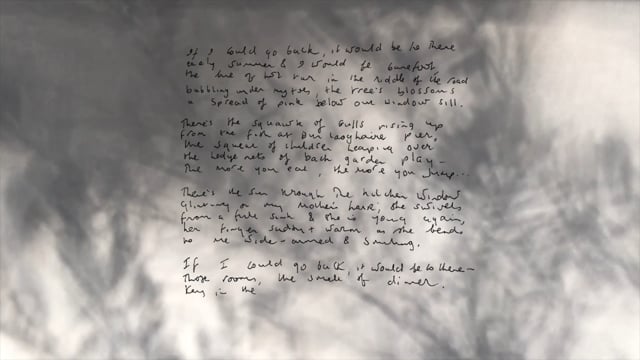 If I could go back, it would be to there
early summer & I would be barefoot
the line of hot tar in the middle of the road
bubbling under my toes, the tree's blossoms
a spread of pink below our window sill.
There's the squawk of gulls rising up
from the fish at Dun Laoghaire Pier.
the squeal of children leaping over
the hedge nets of back garden play –
The more you eat, the more you jump...
There's the sun through the kitchen window
Glinting on my mother's hair, she swivels
from a full sink & she is young again,
her fingers sudsy & warm as she bends
to me wide-armed & smiling.
If I could go back, it would be to there –
those rooms, the smell of dinner.
Key in the